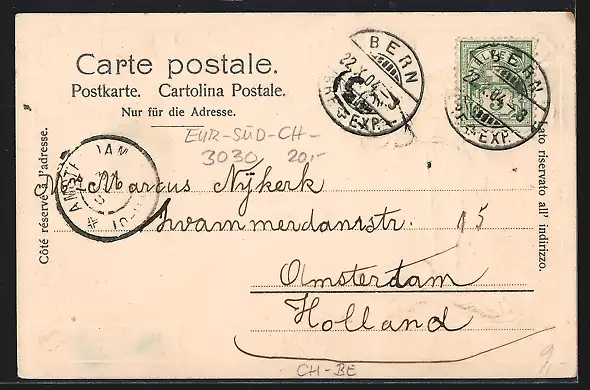 Carte postale.
Postkarte. Cartolina Postale.
Nur für die Adresse.
BERN
22.X.04.-3
BRF. EXP.
BERN
22.X.04.-3
BRF. EXP.
EUR-SÜD-CH-
3030 20,-
AMST DAM
Côté réservé à l'adresse.
Lato riservato all' indirizzo.
Mr Marcus Nijkerk
Swammerdamstr. 15
Amsterdam
Holland
CH-BE
9,-